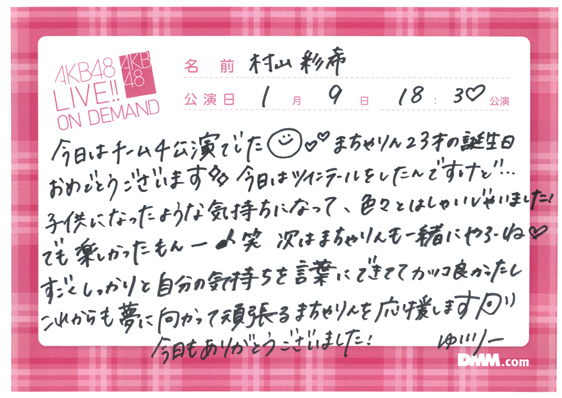 AKB48
LIVE!!
ON DEMAND
AKB
48
名前 村山彩希
公演日 1月 9日 18:30公演
今日はチーム4公演でした まちゃりん23才の誕生日
おめでとうございます 今日はツインテールをしたんですけど…
子供になったような気持ちになって、色々とはしゃいじゃいました!
でも楽しかったもんー♪笑 次はまちゃりんも一緒にやろーね♡
すごくしっかりと自分の気持ちを言葉にできててカッコ良かったし
これからも夢に向かって頑張るまちゃりんを応援します
今日もありがとうございました! ゆいりー
DMM.com